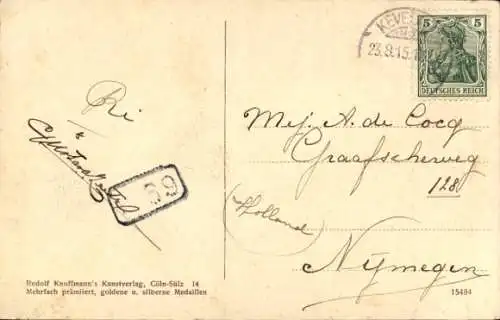 KEVE
23.9.15.
5 5
DEUTSCHES REICH
Mej. A. de Cocq
Graafscheweg
128
(Holland)
Nijmegen
59
Rudolf Kauffmann's Kunstverlag, Cöln-Sülz 14
Mehrfach prämiiert, goldene u. silberne Medaillen
15484